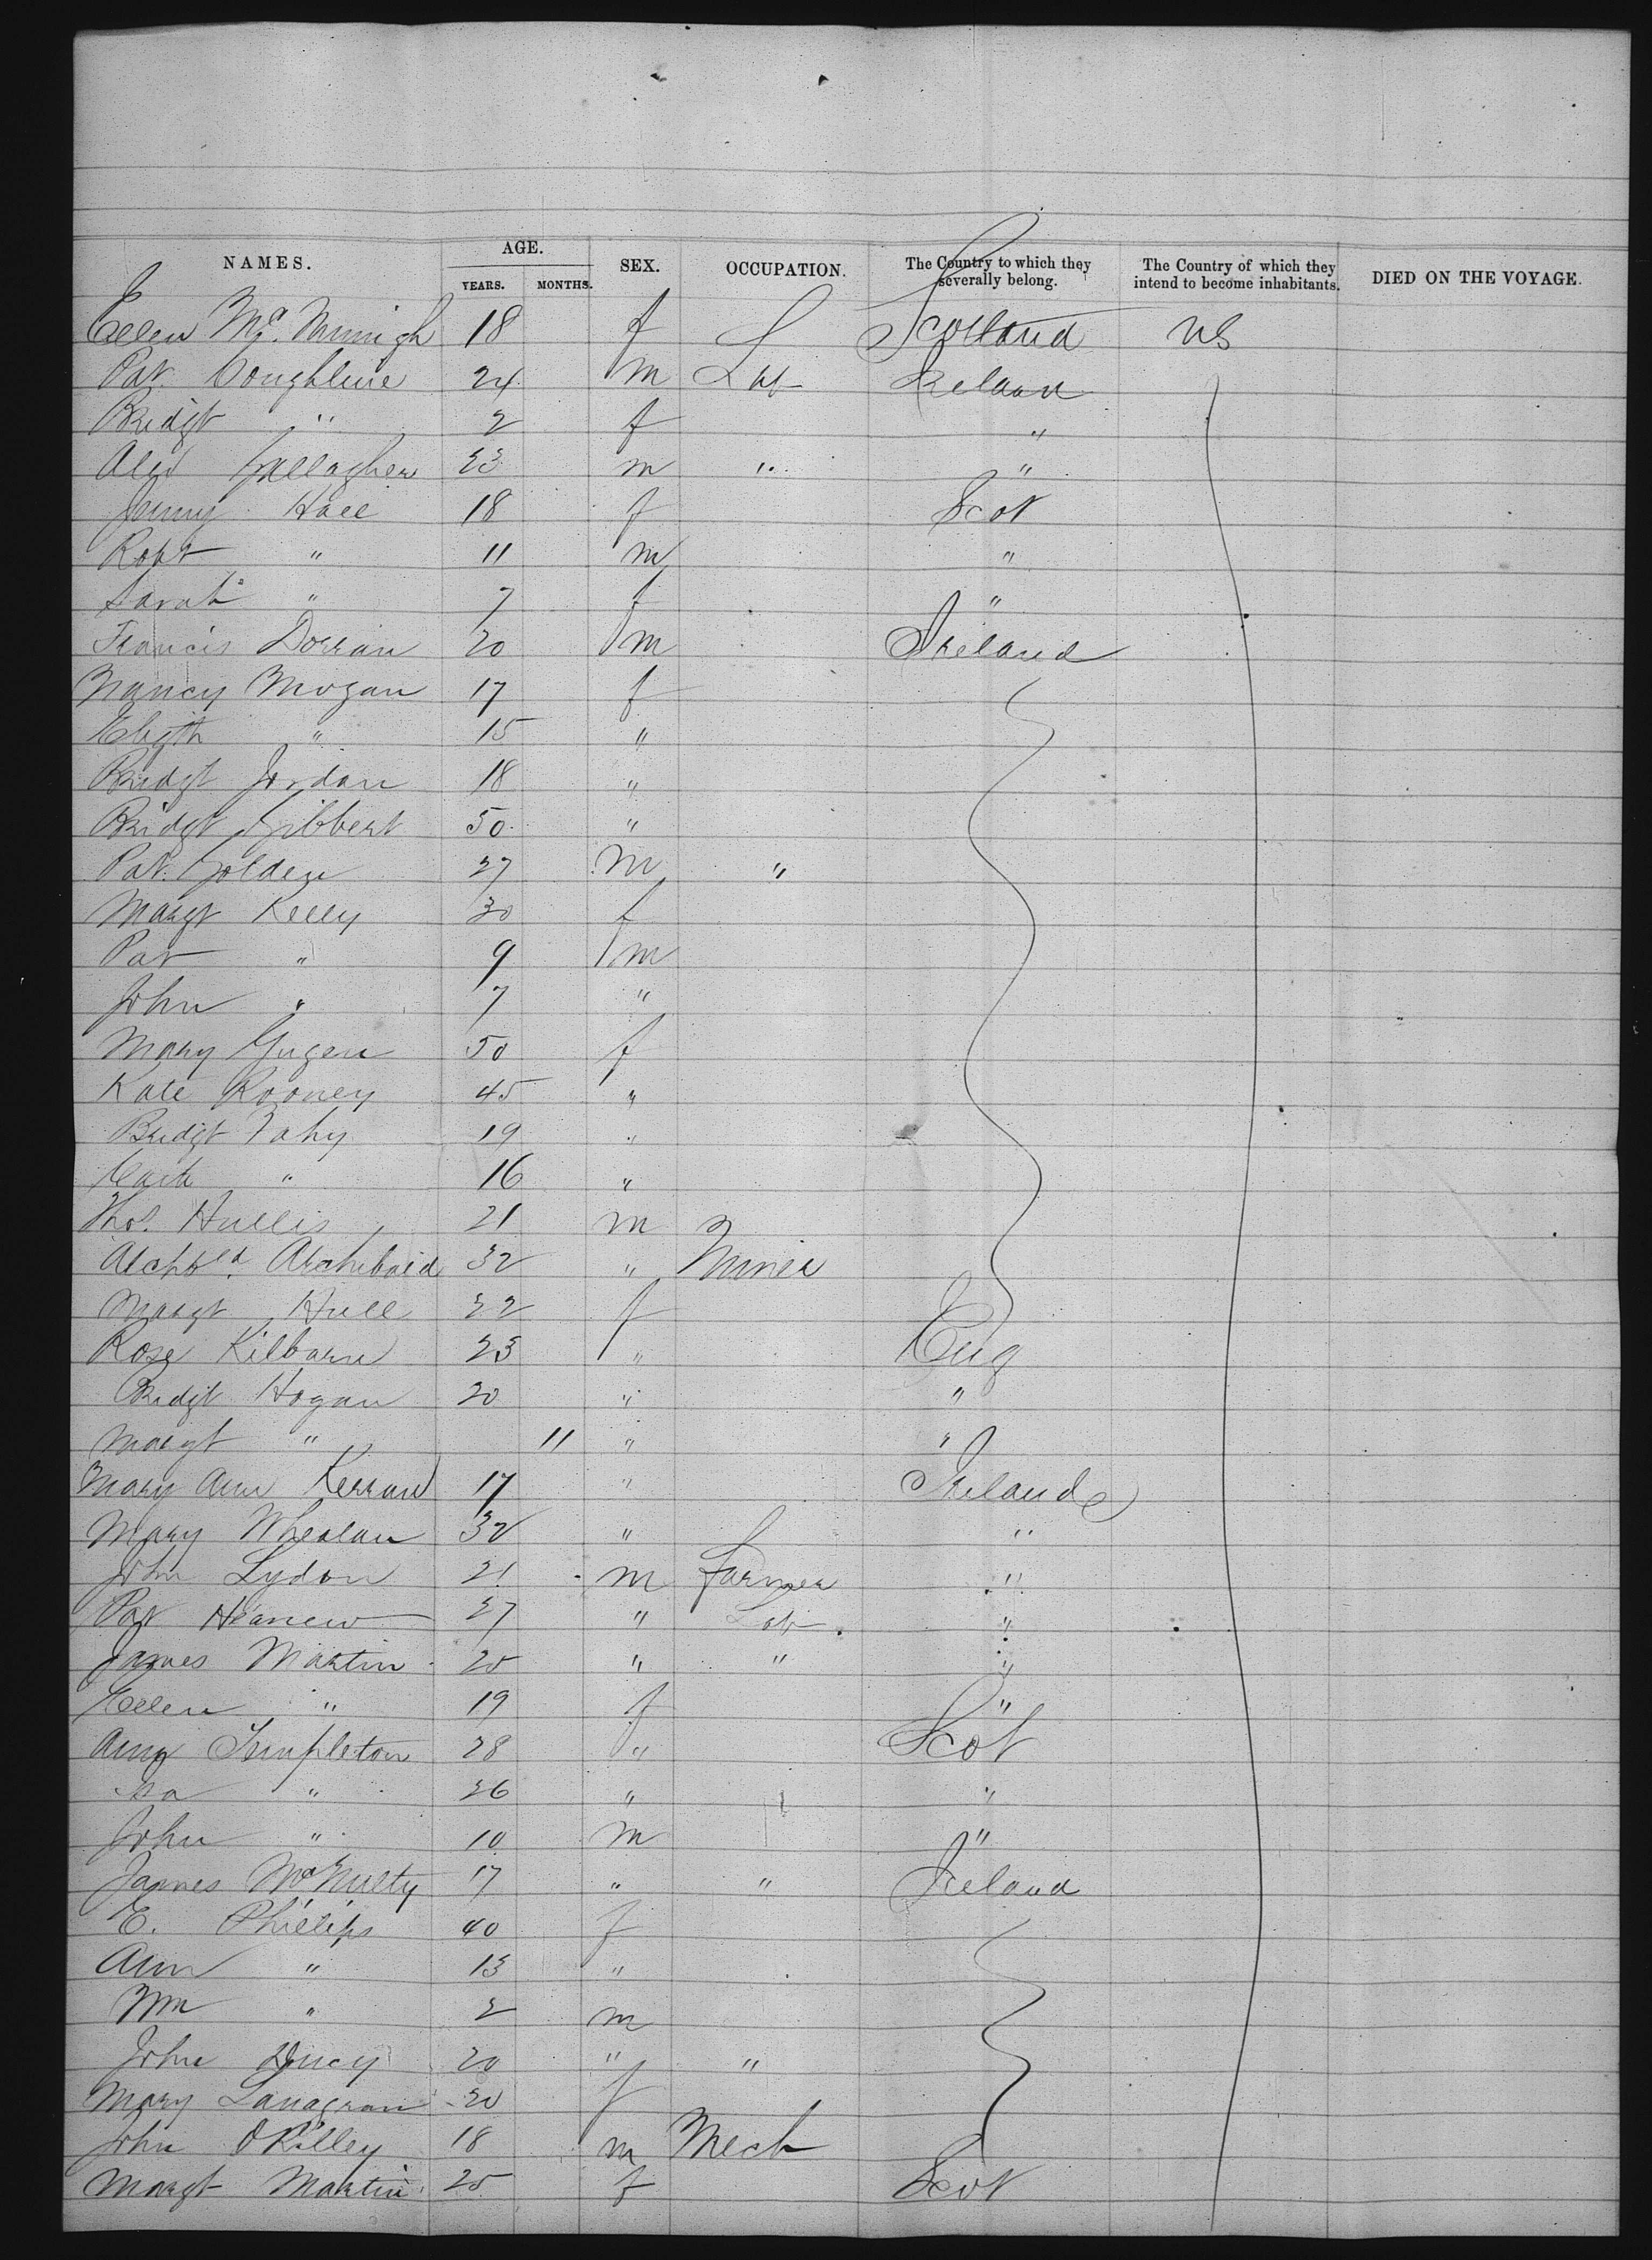 NAMES. AGE. SEX. OCCUPATION. The Country to which they severally belong. The Country of which they intend to become inhabitants. DIED ON THE VOYAGE.
YEARS. MONTHS.
Ellen 18 f Scotland US
Pat. Coughline 24 m Lab Ireland
Bridgt " 2 f "
Gallagher 23 m " "
Jenny Hall 18 f Scot
Robt " 11 m "
Sarah " 7 f "
Francis Dorran 20 m Ireland
Nancy Morgan 17 f
Elizth " 15 "
Bridgt Jordan 18 "
Bridgt Gibbert 50 "
Pat. Golden 27 m "
Margt Kelly 30 f
Pat " 9 m
John " 7 "
Mary 50 f
Kate Rooney 45 "
Bridgt Fahy 19 "
" 16 "
Thos. Hullis 21 m
Archbald 32 " Miner
Margt Hull 22 f
Rose Kilbarn 23 " Eng
Bridgt Hogan 20 " "
Margt " 11 " "
Mary Ann Kerran 17 " Ireland
Mary Whealan 32 " "
John Lydon 21 m Farmer "
Pat 27 " Lab "
James Martin 20 " " "
Ellen " 19 f "
Templeton 28 " Scot
" 26 " "
John " 10 m "
James McNulty 17 " " Ireland
E. Phillips 40 f
Ann " 13 "
Wm " 2 m
John 20 " "
Mary Lanagran 20 f
John O'Rilley 18 m Mech
Margt Martin 25 f Scot